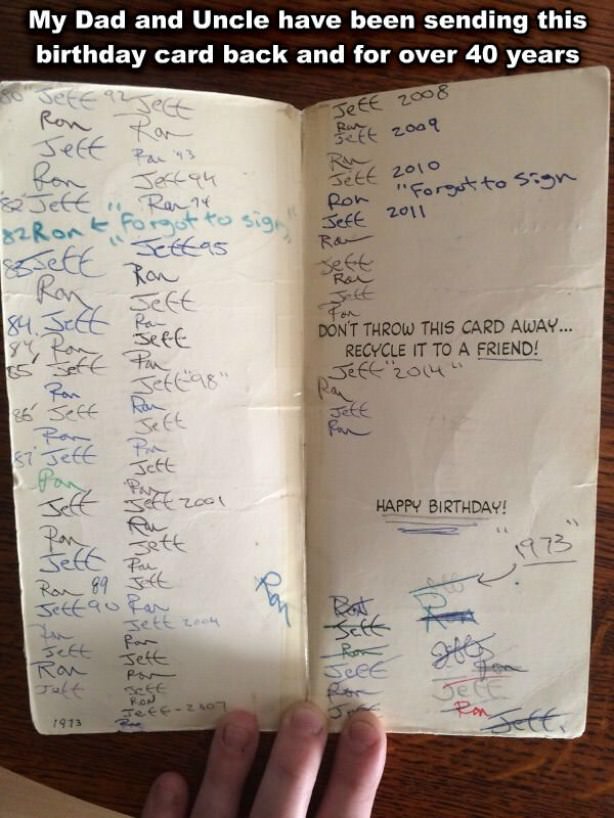 My Dad and Uncle have been sending this
birthday card back and for over 40 years
80 Jeff
Ron
Jeff
Ron
82 Jeff
82 Ron ← "Forgot to sign"
83 Jeff
Ron
84. Jeff
84 Ron
85' Jeff
Ron
86' Jeff
Ron
87 Jeff
Ron
Jeff
Ron
Jeff
Ron 89
Jeff 90
Ron
Jeff
Ron
Jeff
1973
92 Jeff
Ron
Ron '93
Jeff 94
Ron 94
Jeff 95
Ron
Jeff
Ron
Jeff
Ron
Jeff "98"
Ron
Jeff
Ron
Jeff
Ron
Jeff 2001
Ron
Jeff
Ron
Jeff
Ron
Jeff 2004
Ron
Jeff
Ron
Jeff
RON
Jeff-2007
Ron
Ron
Jeff 2008
Ron
Jeff 2009
Ron
Jeff 2010
Ron "Forgot to sign
Jeff 2011
Ron
Jeff
Ron
Jeff
Ron
DON'T THROW THIS CARD AWAY...
RECYCLE IT TO A FRIEND!
Jeff "2014"
Ron
Jeff
Ron
HAPPY BIRTHDAY!
"1973"
Ron
Jeff
Ron
Jeff
Ron
Jeff
Ron
Jeff
Ron
Jeff
Ron
Jeff.